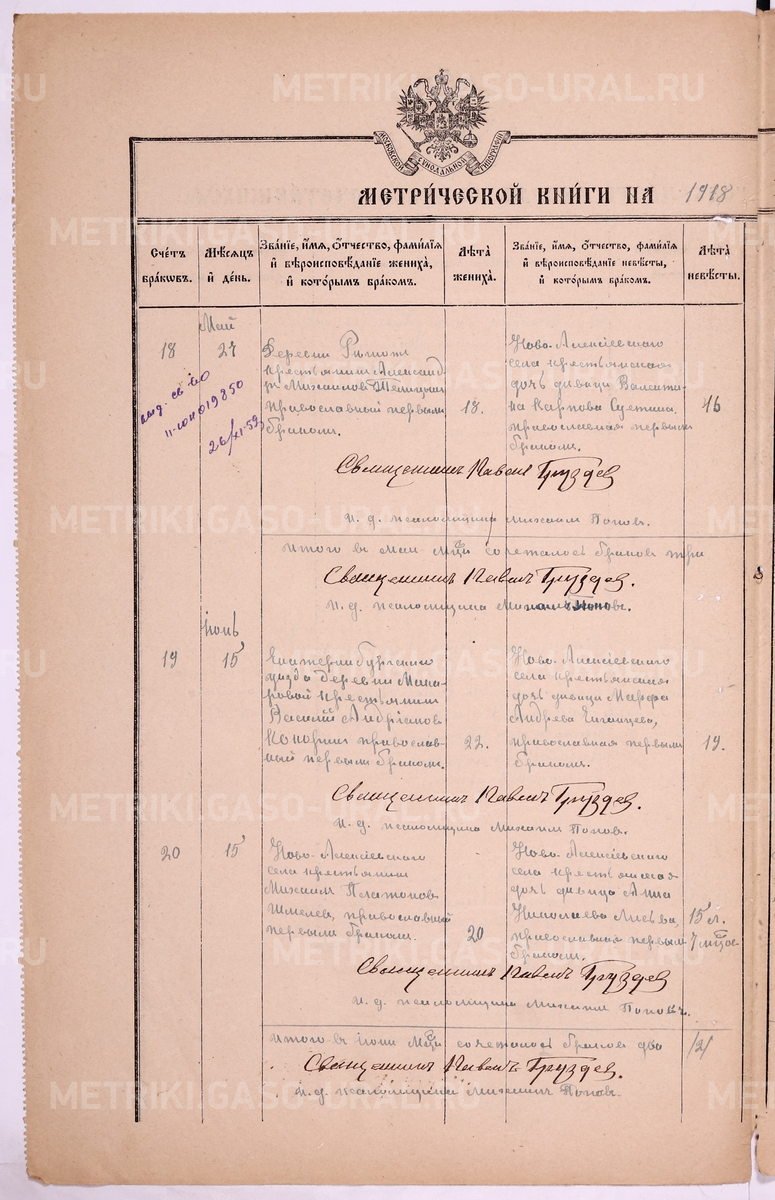 МОСКОВСКОЙ СѴНОДАЛЬНОЙ ТИПОГРАФІИ
МЕТРИ́ЧЕСКОЙ КНИ́ГИ НА 1918
Сче́тъ бра́кωвъ.
Мѣ́сяцъ и҆ де́нь.
Зва́нїе, и҆́мѧ, ѻ҆́тчество, фами́лїѧ
и҆ вѣроисповѣ́данїе жениха̀,
и҆ кото́рымъ бра́комъ.
Лѣ́та жениха̀.
Зва́нїе, и҆́мѧ, ѻ҆́тчество, фами́лїѧ
и҆ вѣроисповѣ́данїе невѣ́сты,
и҆ кото́рымъ бра́комъ.
Лѣ́та невѣ́сты.
Май
18
27
Деревни
крестьянинъ Александръ
Михаиловъ
православный первымъ
бракомъ.
18.
Ново-Алексѣевскаго
села крестьянская
дочь дѣвица Валентина
Карпова
православная первымъ
бракомъ.
16
выд. св-во
II-ЮН 019850
26/XI-59
Священникъ Павелъ Груздев
и. д. псаломщика Михаил Попов.
итого в маи м-цѣ сочеталось браков три
Священникъ Павелъ Груздев.
и. д. псаломщика Михаилъ Поповъ.
Іюнь
19
15
Екатеринбургскаго
уѣзда деревни Макаровой
крестьянин
Василий Андріанов
православный
первым браком.
22.
Ново-Алексѣевскаго
села крестьянская
дочь дѣвица Марфа
Андреева
православная первым
браком.
19.
Священникъ Павелъ Груздев.
и. д. псаломщика Михаил Попов.
20
15
Ново-Алексѣевскаго
села крестьянин
Михаил Платонов
Шмелев, православный
первым браком.
20
Ново-Алексѣевскаго
села крестьянская
дочь дѣвица Анна
Николаева
православная первым
браком.
15 л.
7 мѣс.
Священникъ Павелъ Груздев
и. д. псаломщика Михаил Поповъ.
итого в іюни м-цѣ сочеталось браков два
/2/
Священникъ Павелъ Груздев.
и. д. псаломщика Михаил Попов.
METRIKI.GASO-URAL.RU